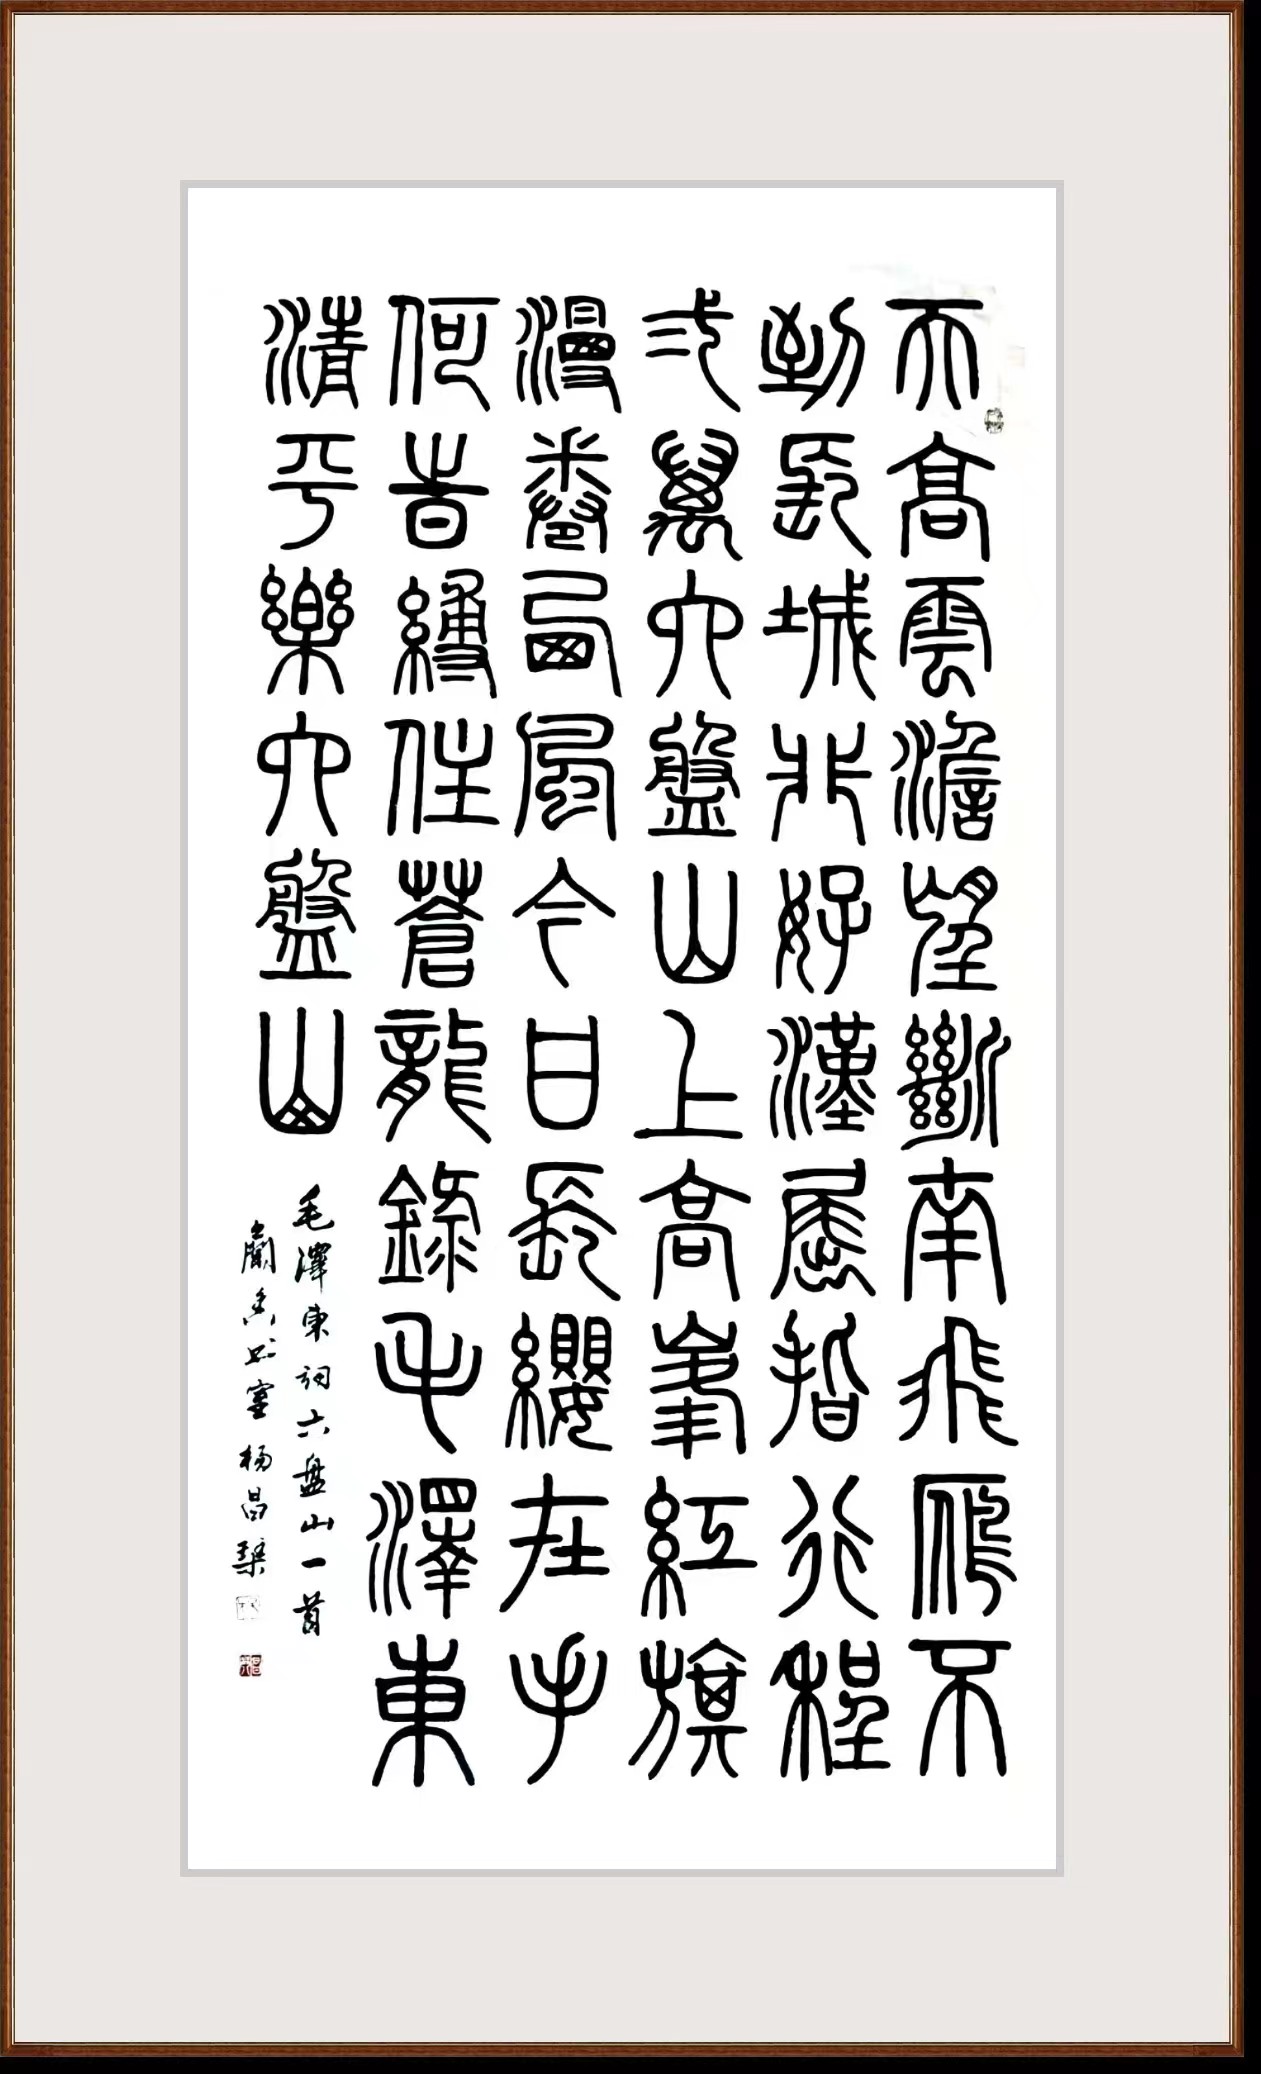 天高雲澹望斷南飛雁不
到長城非好漢屈指行程
弍萬六盤山上高峯紅旗
漫卷西風今日長纓在手
何旹縛住蒼龍錄毛澤東
清平樂六盤山
毛澤东詞六盘山一首
蘭香书室杨昌